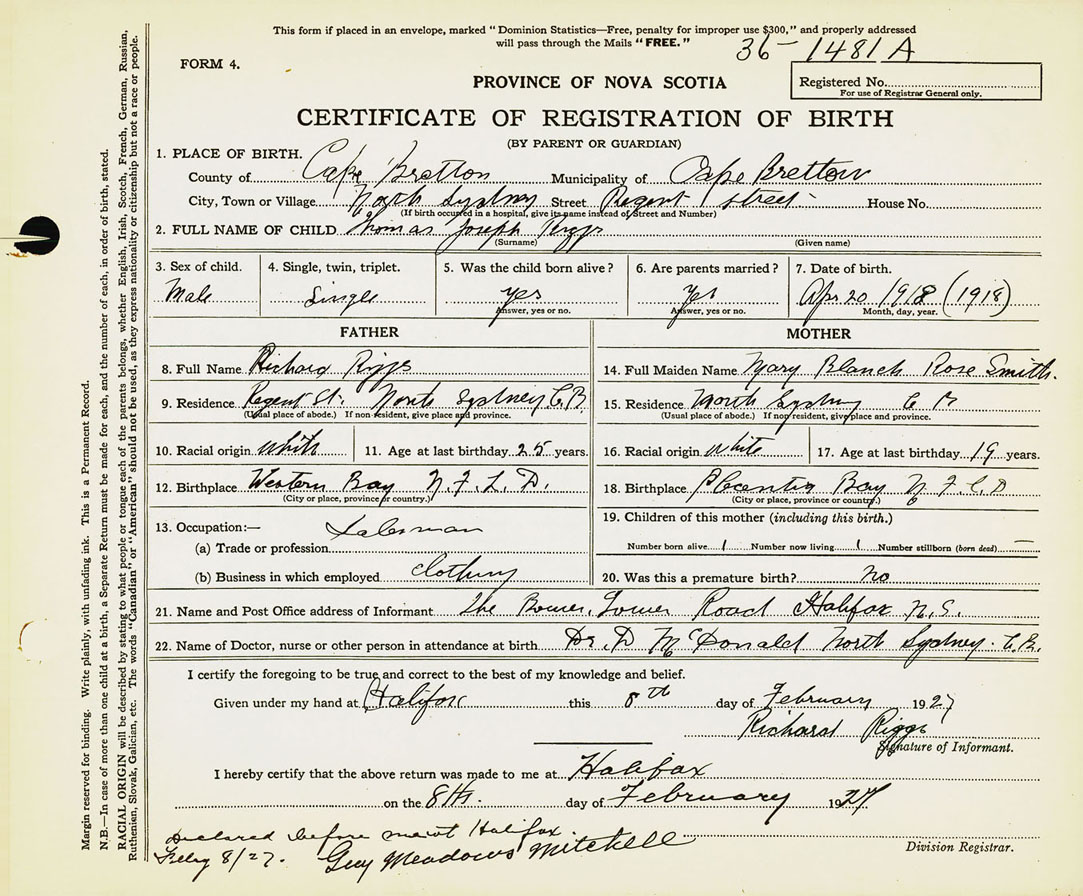 This form if placed in an envelope, marked " Dominion Statistics—Free, penalty for improper use $300," and properly addressed
will pass through the Mails "FREE."
36-1481A
FORM 4.
PROVINCE OF NOVA SCOTIA
Registered No.
For use of Registrar General only.
CERTIFICATE OF REGISTRATION OF BIRTH
(BY PARENT OR GUARDIAN)
1. PLACE OF BIRTH.
County of Cape Bretton Municipality of Cape Bretton
City, Town or Village North Sydney Street Regent Street House No.
(If birth occurred in a hospital, give its name instead of Street and Number)
2. FULL NAME OF CHILD Thomas Joseph Riggs
(Surname) (Given name)
3. Sex of child. 4. Single, twin, triplet. 5. Was the child born alive? 6. Are parents married? 7. Date of birth.
Male Single yes Yes Apr 20 1918 (1918)
Answer, yes or no. Answer, yes or no. Month, day, year.
FATHER MOTHER
8. Full Name Richard Riggs 14. Full Maiden Name Mary Blanch Rose Smith.
9. Residence Regent St. North Sydney C.B 15. Residence North Sydney C B
(Usual place of abode.) If non-resident, give place and province. (Usual place of abode.) If non resident, give place and province.
10. Racial origin white 11. Age at last birthday 25 years. 16. Racial origin white 17. Age at last birthday 19 years.
12. Birthplace Western Bay N.F.L.D. 18. Birthplace Placentia Bay N.F.L.D
(City or place, province or country.) (City or place, province or country.)
13. Occupation:— Salesman 19. Children of this mother (including this birth.)
(a) Trade or profession
Number born alive 1 Number now living 1 Number stillborn (born dead) —
(b) Business in which employed clothing 20. Was this a premature birth? no
21. Name and Post Office address of Informant The Bower, Tower Road Halifax N.S.
22. Name of Doctor, nurse or other person in attendance at birth Dr. D McDonald North Sydney. C.B.
I certify the foregoing to be true and correct to the best of my knowledge and belief.
Given under my hand at Halifax this 8th day of February 1927
Richard Riggs
Signature of Informant.
I hereby certify that the above return was made to me at Halifax
on the 8th. day of February 1927
Declared before me at Halifax.
Feby 8/27. Guy Meadows Mitchell
Division Registrar.
Margin reserved for binding. Write plainly, with unfading ink. This is a Permanent Record.
N.B.—In case of more than one child at a birth, a Separate Return must be made for each, and the number of each, in order of birth, stated.
RACIAL ORIGIN will be described by stating to what people or tongue each of the parents belongs, whether English, Irish, Scotch, French, German, Russian,
Ruthenian, Slovak, Galician, etc. The words "Canadian" or "American" should not be used, as they express nationality or citizenship but not a race or people.